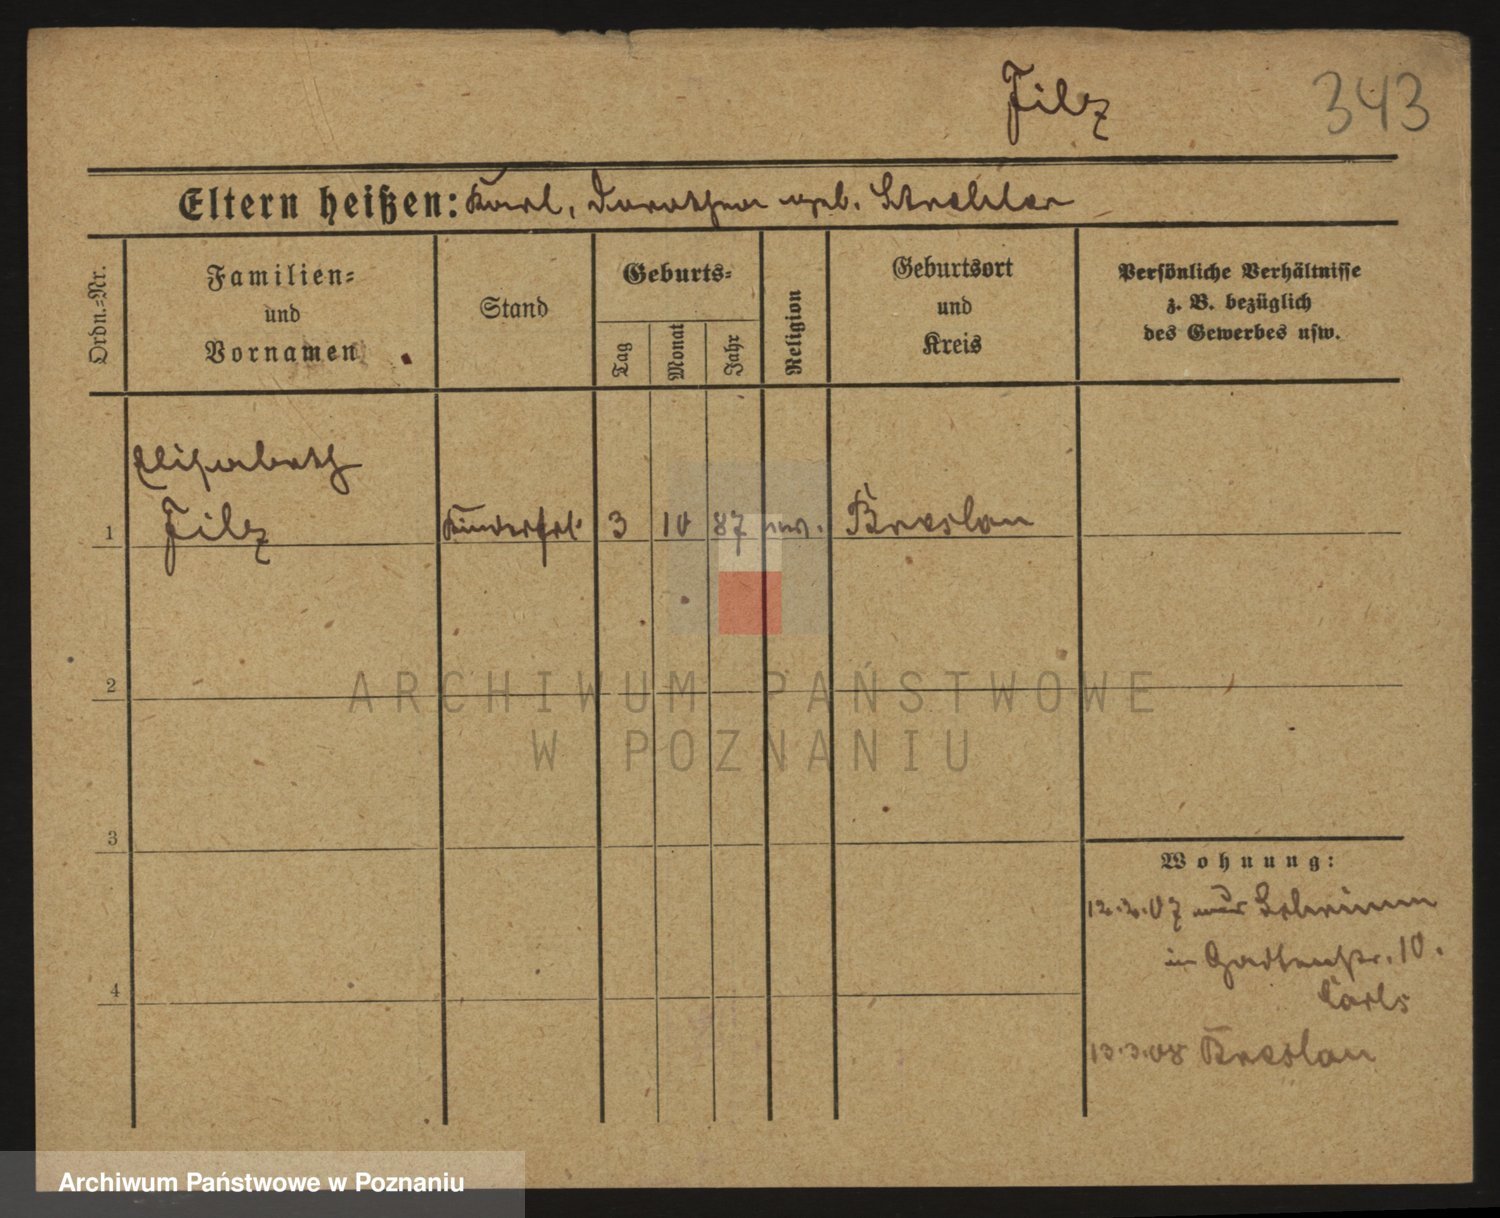 Filz 343
Eltern heißen: Karl, Dorothea geb.
Ordn.=Nr.
Familien=
und
Vornamen
Stand
Geburts=
Tag
Monat
Jahr
Religion
Geburtsort
und
Kreis
Persönliche Verhältnisse
z. B. bezüglich
des Gewerbes usw.
Elisabeth
1 Filz Kinderfrl. 3 10 87 Breslau
2
3
4
Wohnung:
12.2.07 aus Schrimm
in Gartenstr. 10.
13.3.08 Breslau
ARCHIWUM PAŃSTWOWE
W POZNANIU
Archiwum Państwowe w Poznaniu